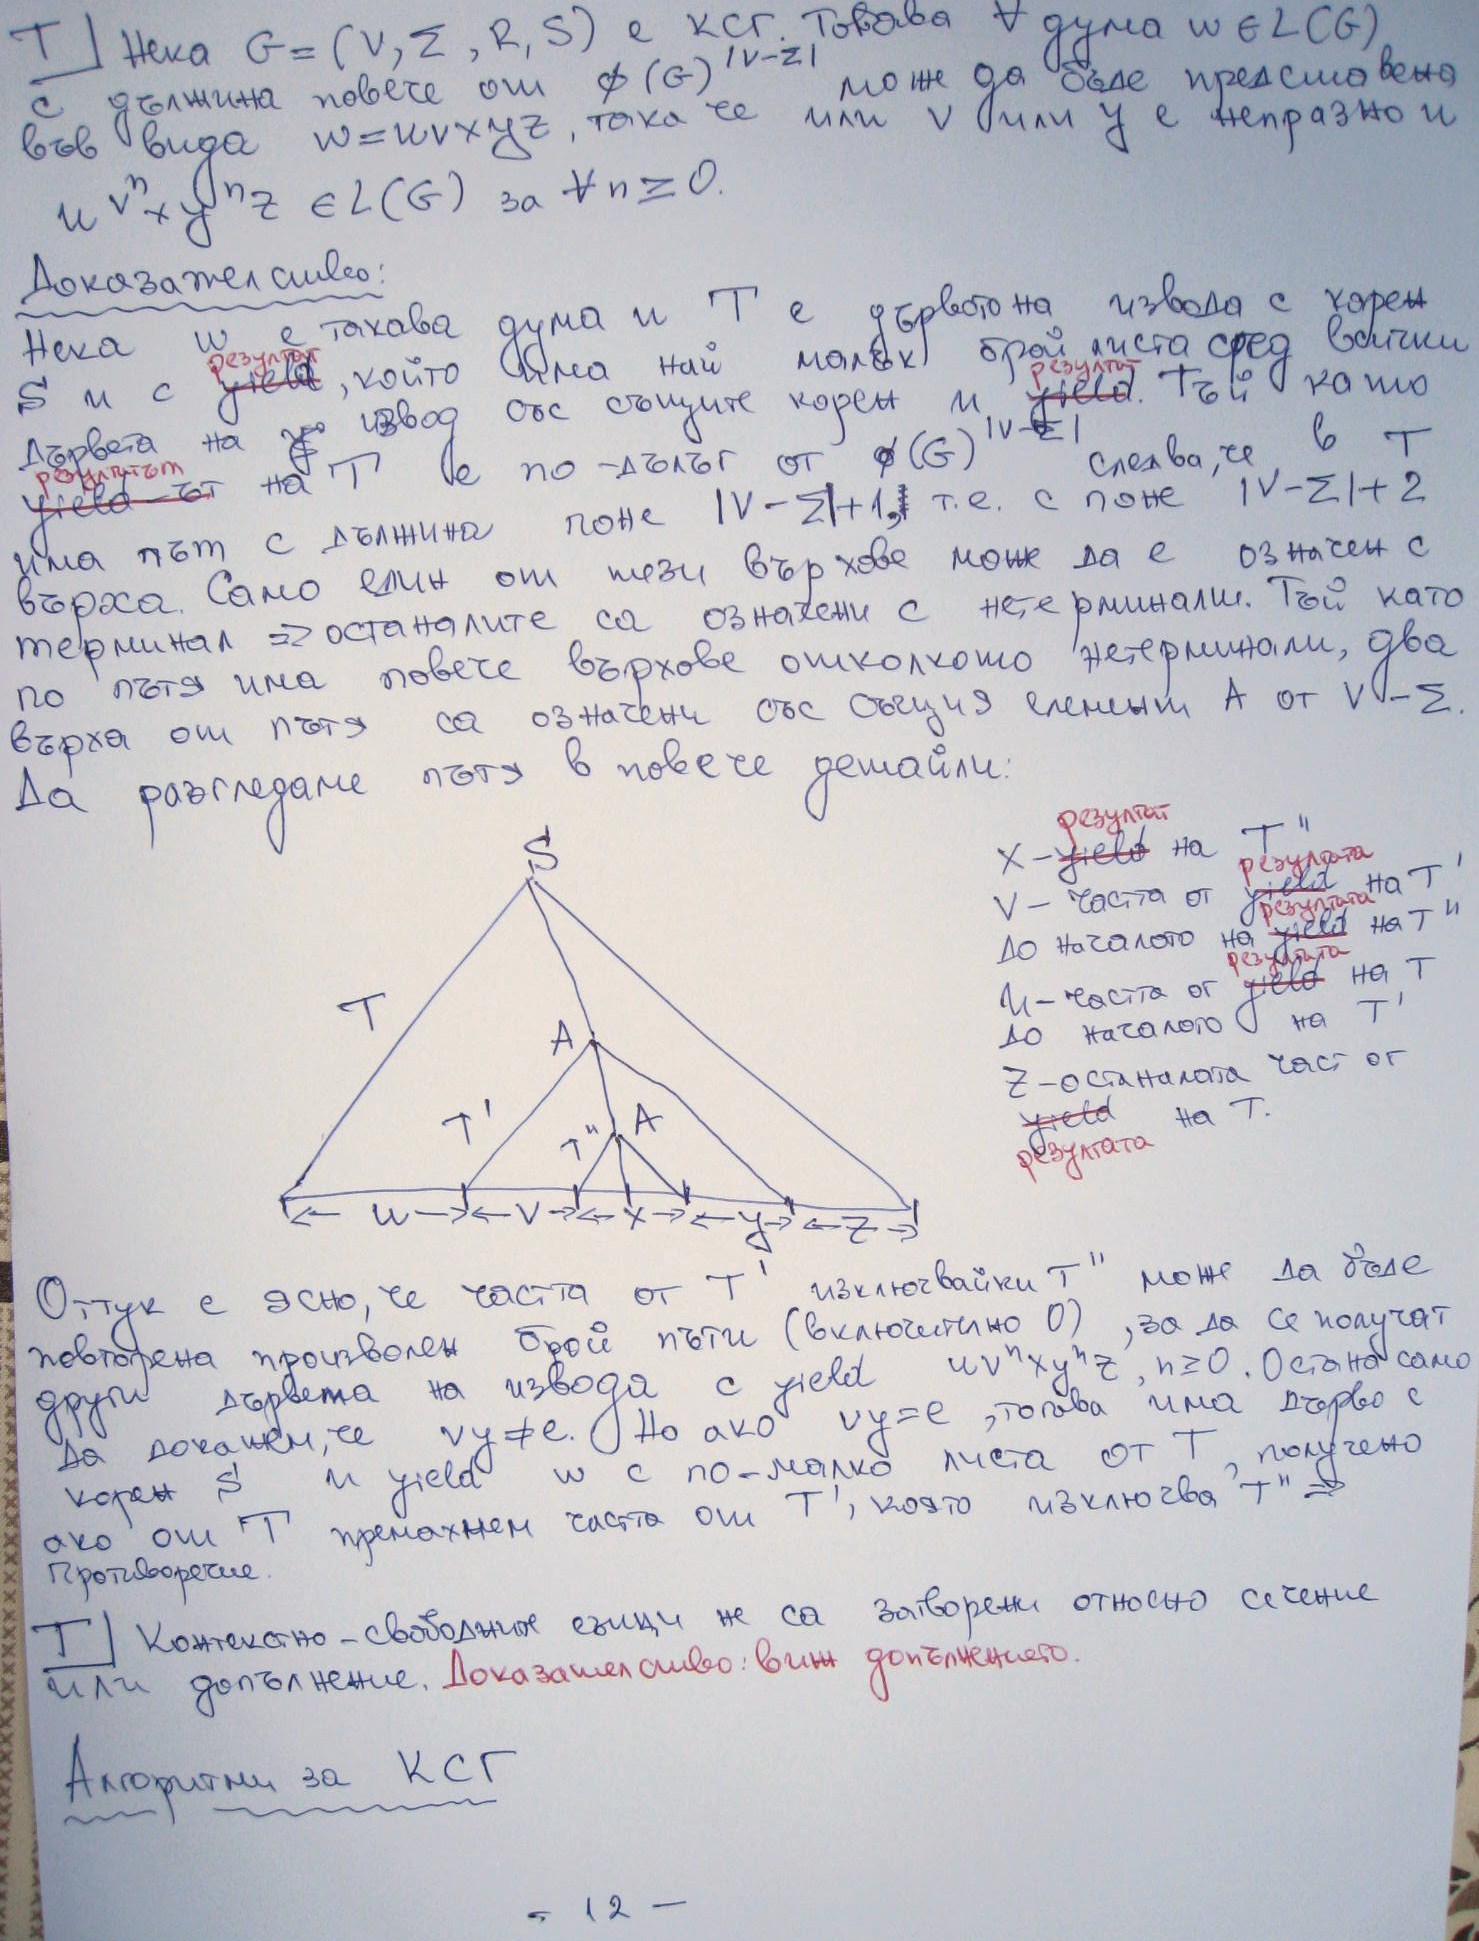 Т| Нека G=(V,Σ,R,S) е КСГ. Тогава ∀ дума w∈L(G)
с дължина повече от ϕ(G)^|V-Σ| може да бъде представена
във вида w=uvxyz, така че или v или y е непразно и
uv^nxy^nz ∈L(G) за ∀n≥0.
Доказателство:
Нека w е такава дума и T е дървото на извода с корен
S и с yield резултат, който има най малък брой листа сред всички
дървета на извод със същите корен и yield резултат. Тъй като
yield-ът резултатът на T е по-дълъг от ϕ(G)^|V-Σ| следва, че в T
има път с дължина поне |V-Σ|+1, т.е. с поне |V-Σ|+2
върха. Само един от тези върхове може да е означен с
терминал => останалите са означени с нетерминали. Тъй като
по пътя има повече върхове отколкото нетерминали, два
върха от пътя са означени със същия елемент A от V-Σ.
Да разгледаме пътя в повече детайли:
S
T
A
T'
T" A
u v x y z
x-yield резултат на T"
v-частта от yield резултата на T'
до началото на yield резултата на T"
u-частта от yield резултата на T
до началото на T'
z-останалата част от
yield на T.
резултата
Оттук е ясно, че частта от T' изключвайки T" може да бъде
повторена произволен брой пъти (включително 0), за да се получат
други дървета на извода с yield uv^nxy^nz, n≥0. Остана само
да докажем, че vy≠e. Но ако vy=e, тогава има дърво с
корен S и yield w с по-малко листа от T, получено
ако от T премахнем частта от T', която изключва T" =>
Противоречие.
Т| Контекстно-свободните езици не са затворени относно сечение
или допълнение. Доказателство: виж допълнението.
Алгоритми за КСГ
- 12 -